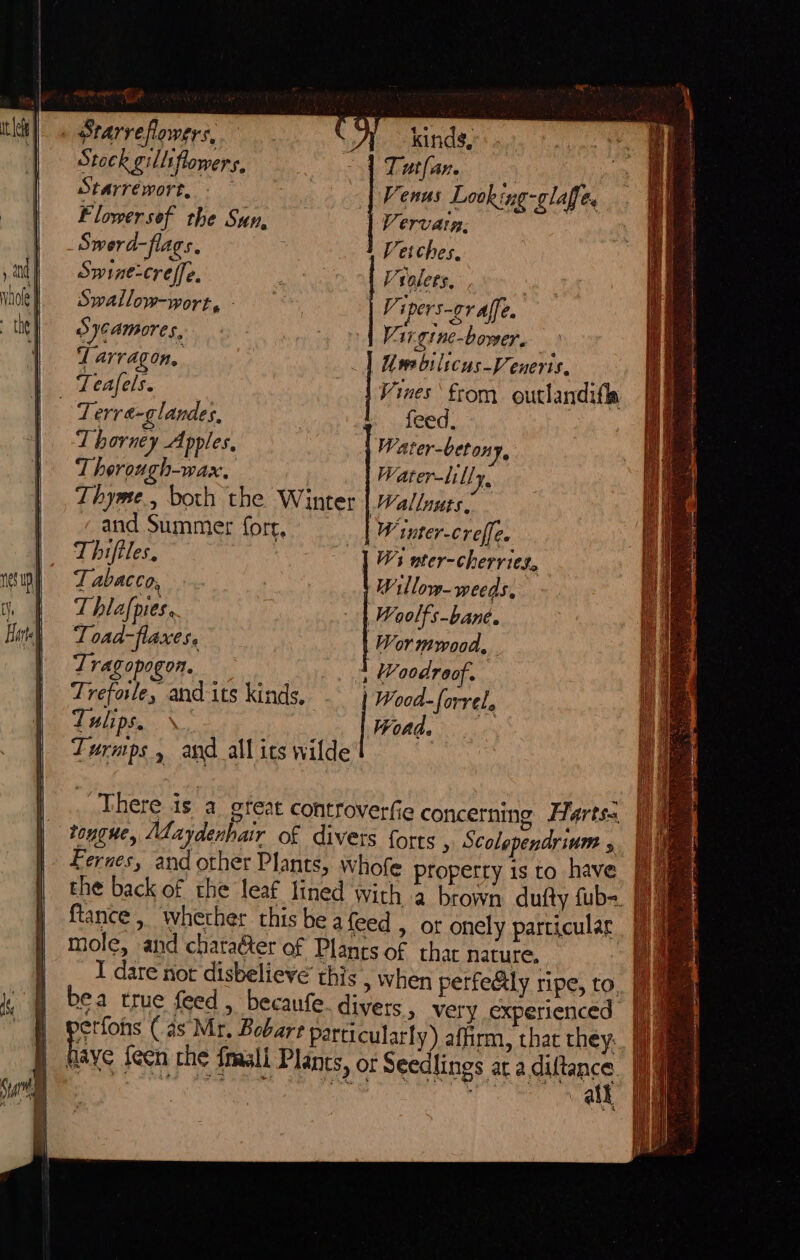 (9)
Starreflowers,
Stock gilliflowers,
Starrewort,
Flowersof the Sun,
Swerd-flags.
Swine-creſſe.
Swallow-wort,
Sycamores,
Tarragon,
Teaſels.
Terræ-glandes,
Thorney Apples,
Thorough-wax,
Thyme, both the Winter
and Summer ſort,
Thiſtles.
Tabacco,
Thlaſpies.
Toad-flaxes.
Tragopogon.
Trefoile, and its kinds.
Tulips.
Turnips, and all its wilde
kinds,
Tutſan.
Venus Looking-glaſſe,
Vervain,
Vetches.
Violets.
Vipers-graſſe.
Virgine-bower.
Umbilicus-Veneris,
Vines from outlandiſh
ſeed.
Water-betony,
Water-lilly,
Wallnuts,
Winter-creſſe.
Winter-cherries,
Willow-weeds,
Woolfs-bane.
Wormwood,
Woodroof.
Wood-ſorrel,
Woad.
There is a great controverſie concerning Harts-
tongue, Maydenhair of divers ſorts, Scolopendrium,
Fernes, and other Plants, whoſe property is to have
the back of the leaf lined with a brown duſty ſub-
ſtance, whether this be a ſeed, or onely particular
mole, and character of Plants of that nature.
I dare not disbelieve this, when perfectly ripe, to
be a true ſeed, becauſe divers, very experienced
perſons (as Mr. Bobart particularly) affirm, that they
have ſeen the ſmall Plants, or Seedlings at a diſtance
all